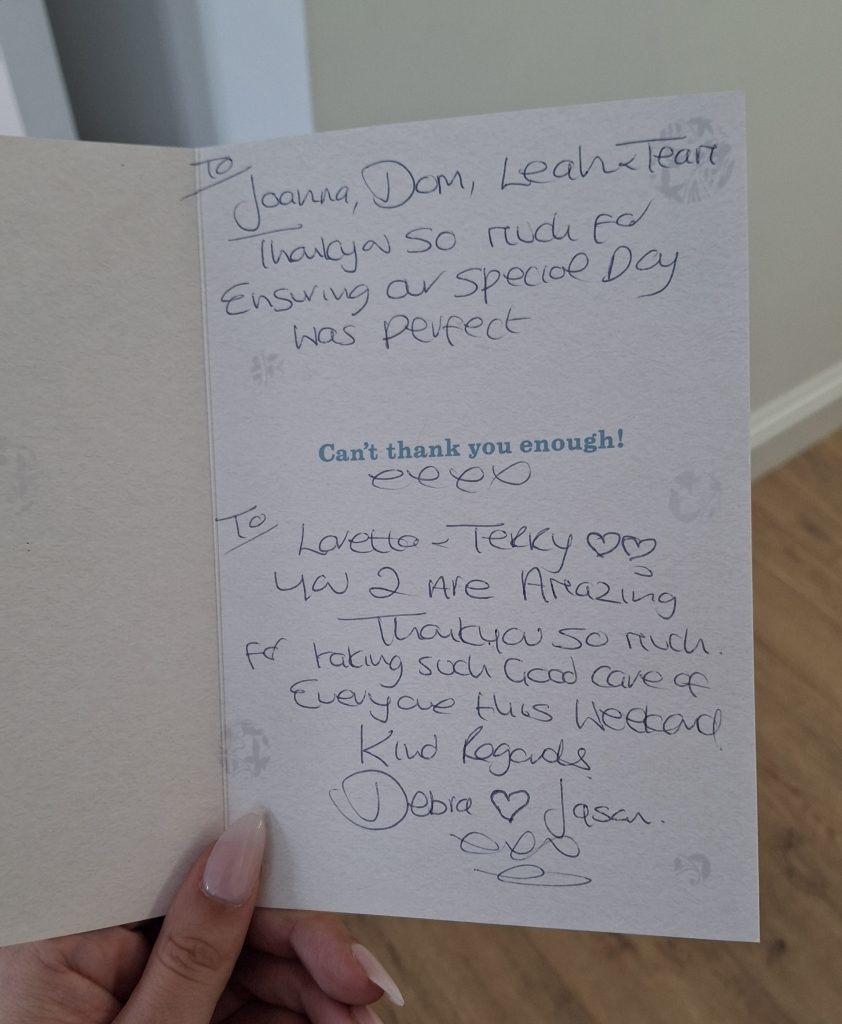 To
Joanna, Dom, Leah & Team
Thankyou so much for
Ensuring our special Day
was perfect
Can't thank you enough!
To
Loretta & Terry ♡♡
You 2 Are Amazing
Thankyou so much.
for taking such Good care of
Everyone this Weekend
Kind Regards
Debra ♡ Jason.